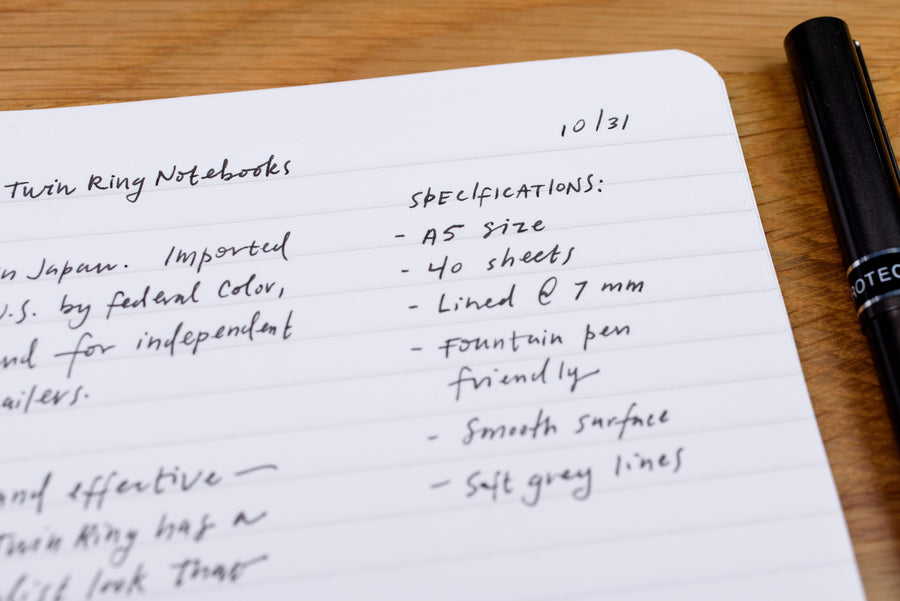 10/31
Twin Ring Notebooks
in Japan. Imported
U.S. by Federal Color,
and for independent
ailers.
and effective —
Twin Ring has a
list look that
SPECIFICATIONS:
- A5 size
- 40 sheets
- Lined @ 7 mm
- Fountain pen
friendly
- Smooth surface
- Soft grey lines
OTEC